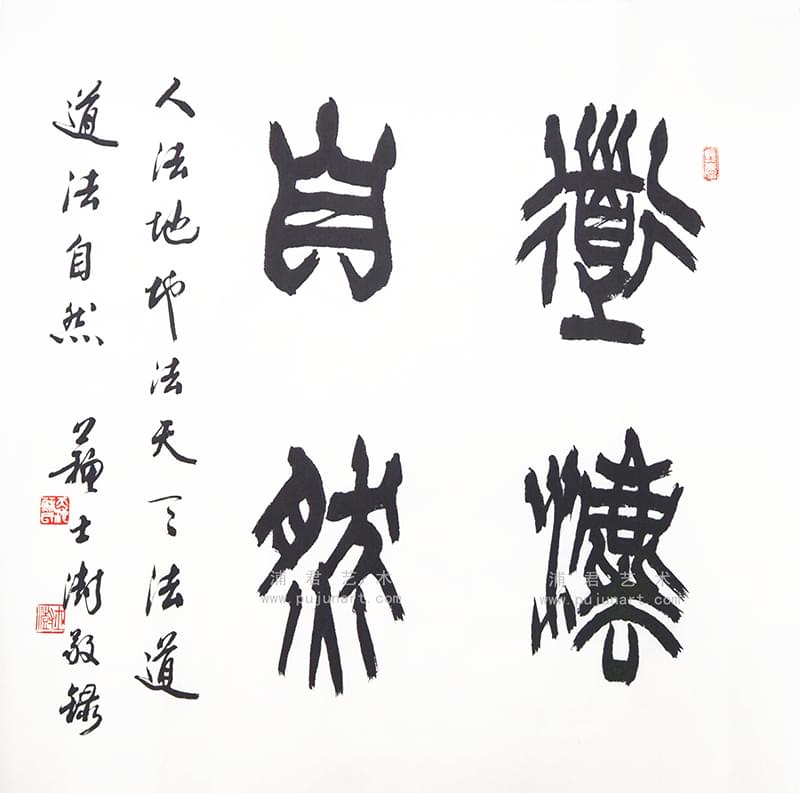 道灋
自然
人法地地法天天法道
道法自然 蘇士澍敬録
浦君艺术
www.pujunart.com
浦君艺术
www.pujunart.com